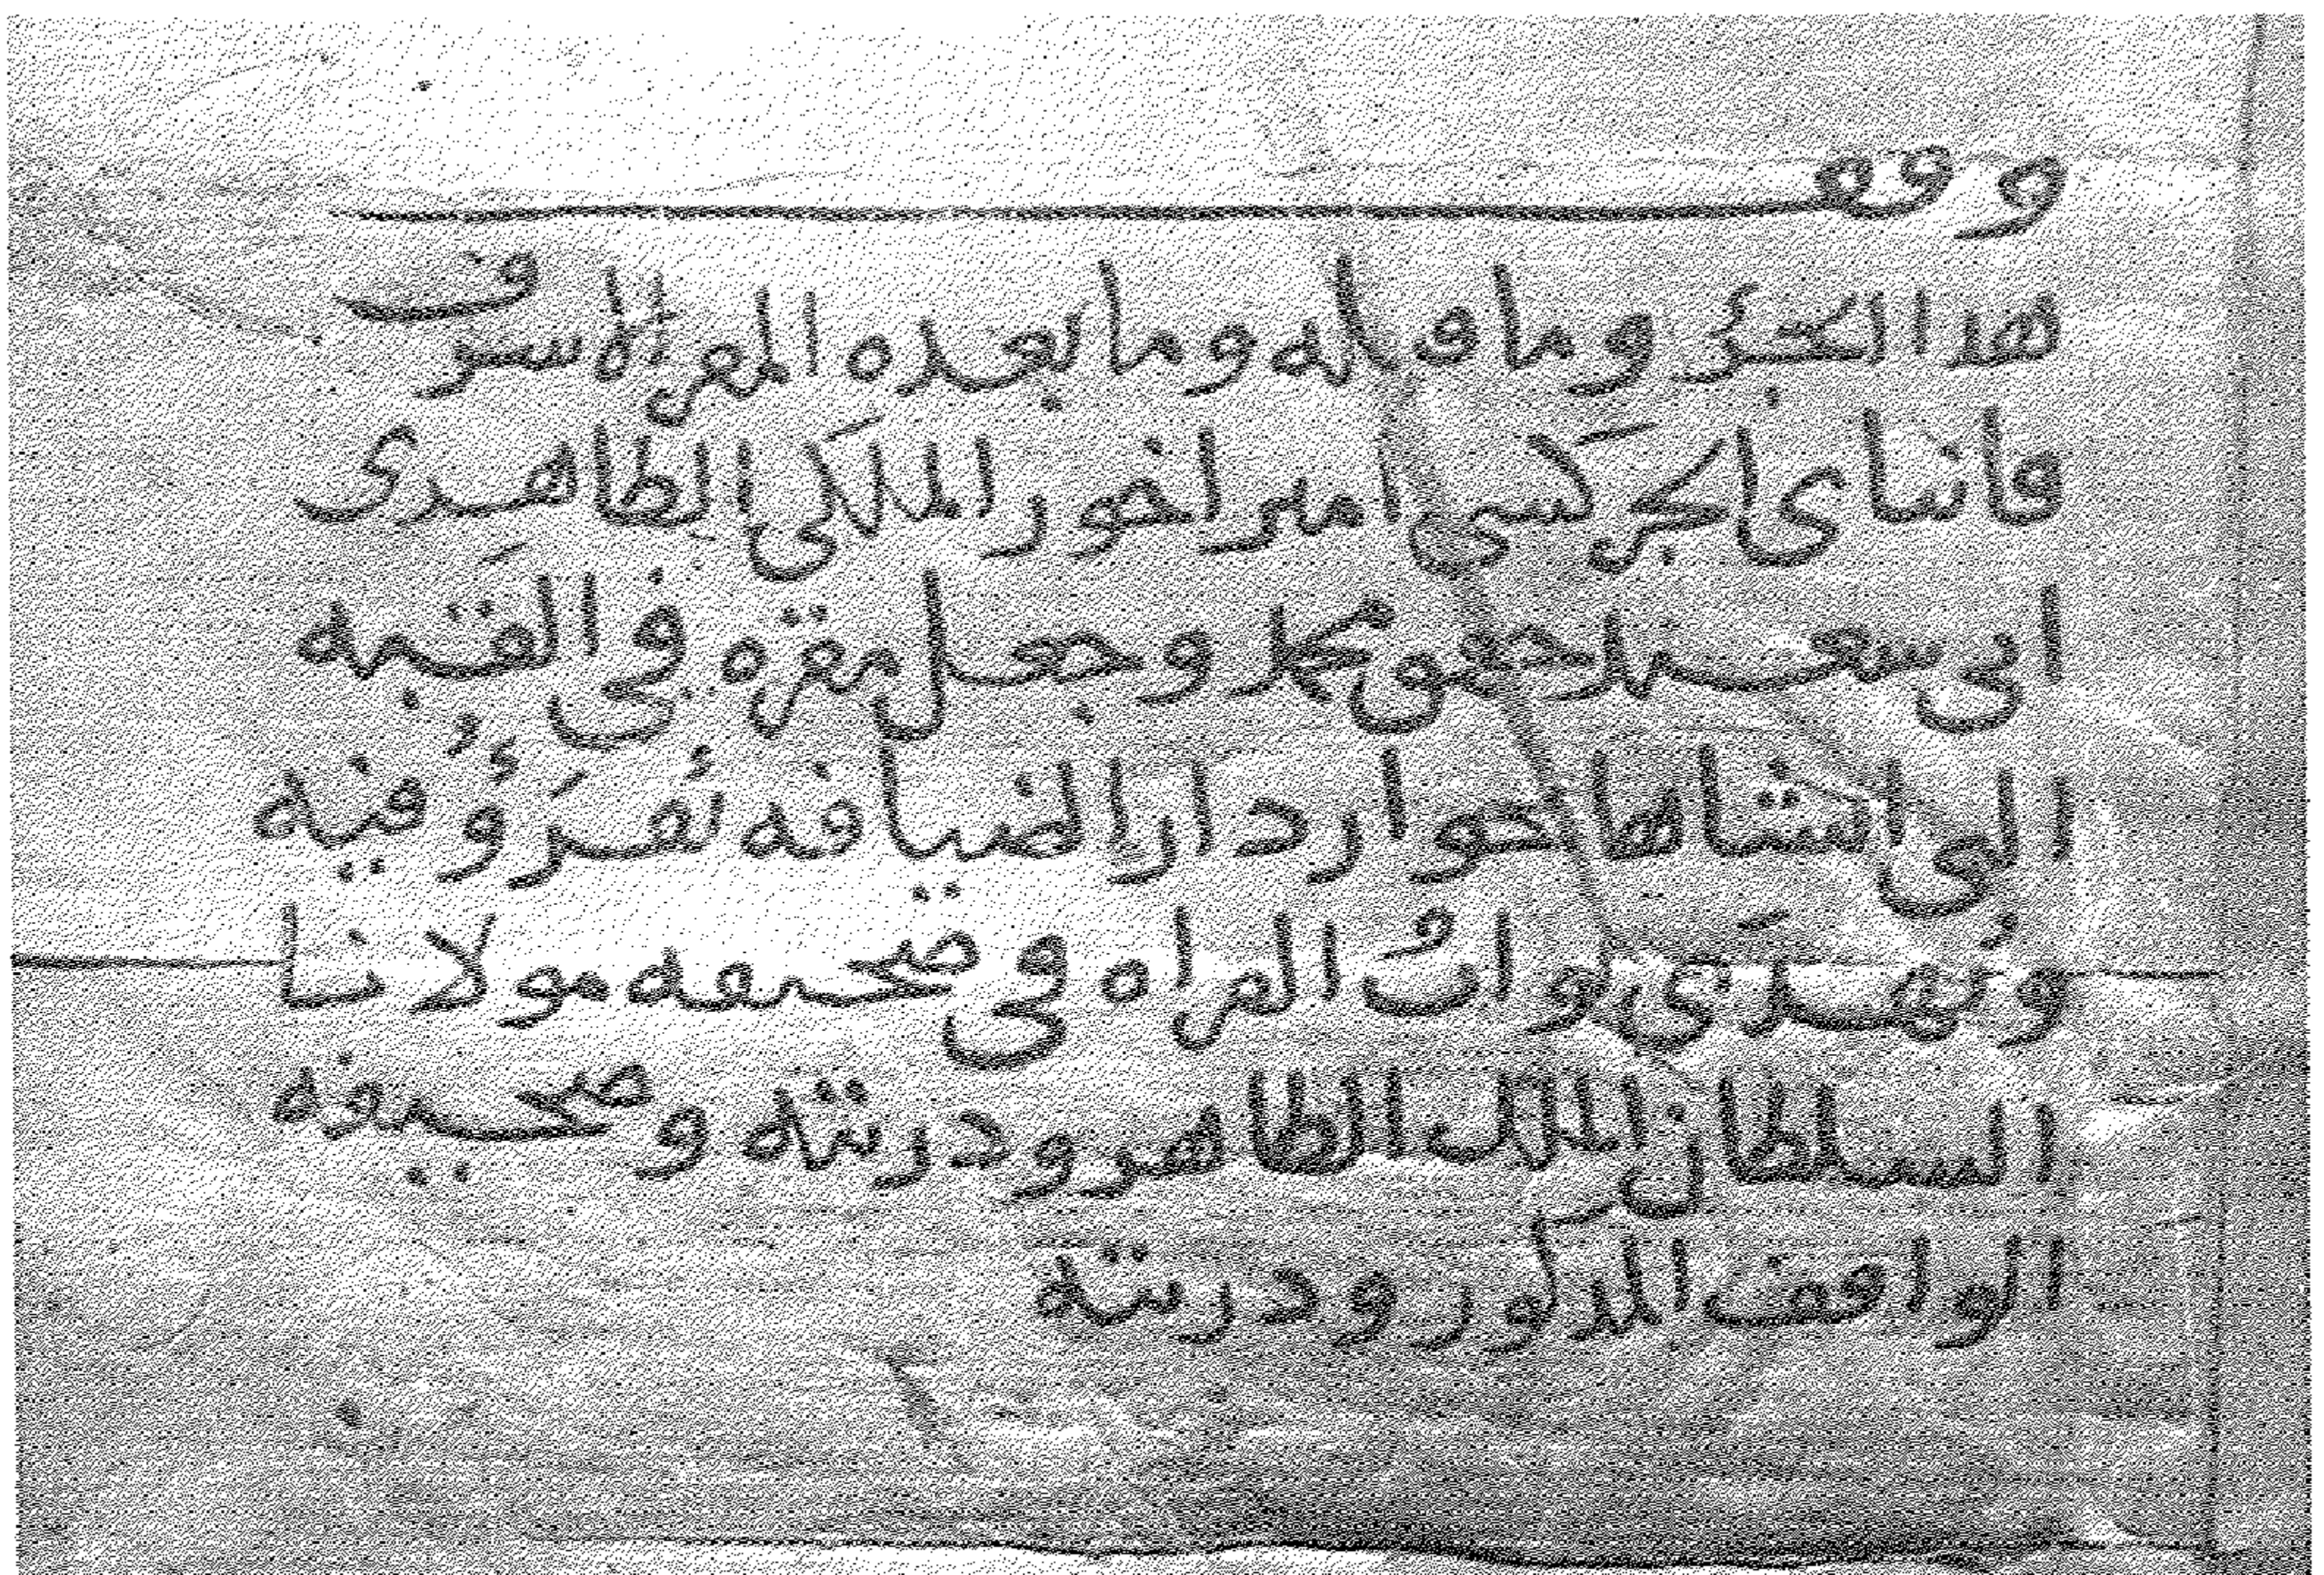 وقف
هذا الجزء وما قبله وما بعده المقر الاشرف
قانباى الجركسى امير اخور الملكى الظاهرى
ابى سعيد جقمق محمد وجعل مقره فى القبه
التى انشاها بجوار دار الضيافه تقرؤ فيه
ويهدى ثواب القراه فى صحيفه مولانا
السلطان الملك الظاهر وذريته وصحيفه
الواقف المذكور وذريته